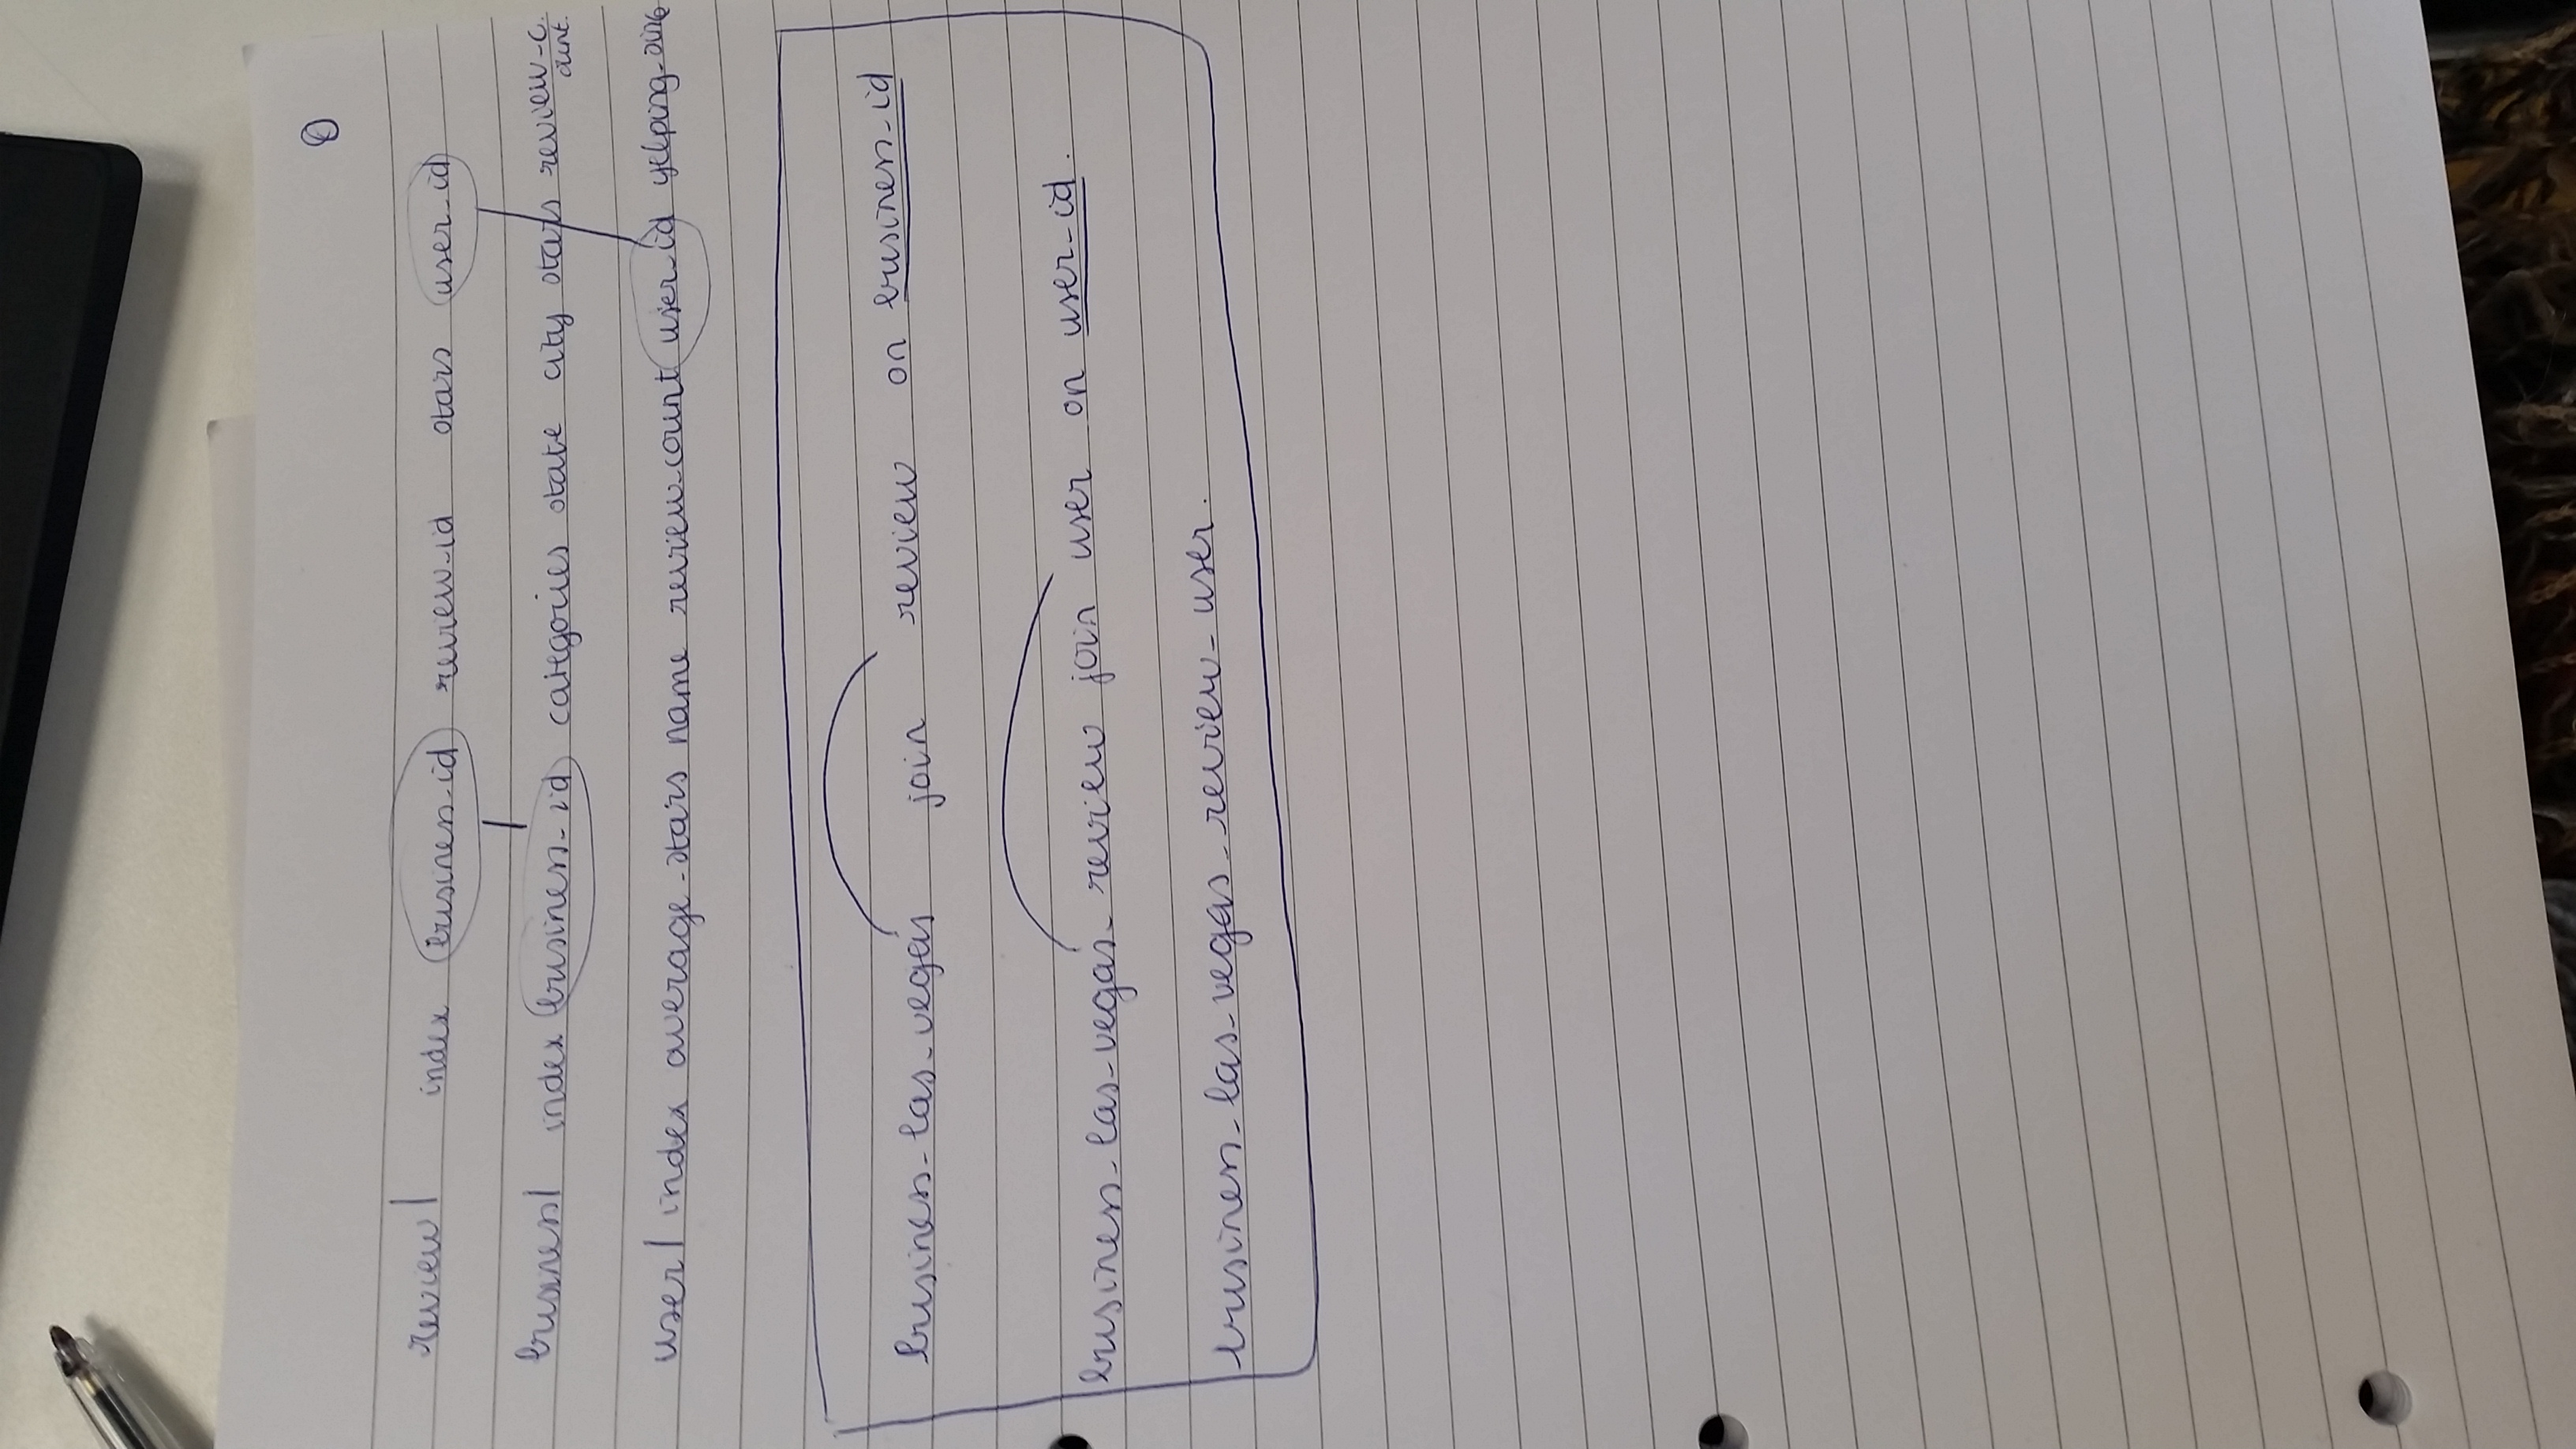 0
review| index business_id review_id stars user_id
business| index business_id categories state city stars review_c.
ount.
user| index average_stars name review_count user_id yelping_since
business_las_vegas join review on business_id
business_las_vegas_review join user on user_id.
business_las_vegas_review_user.